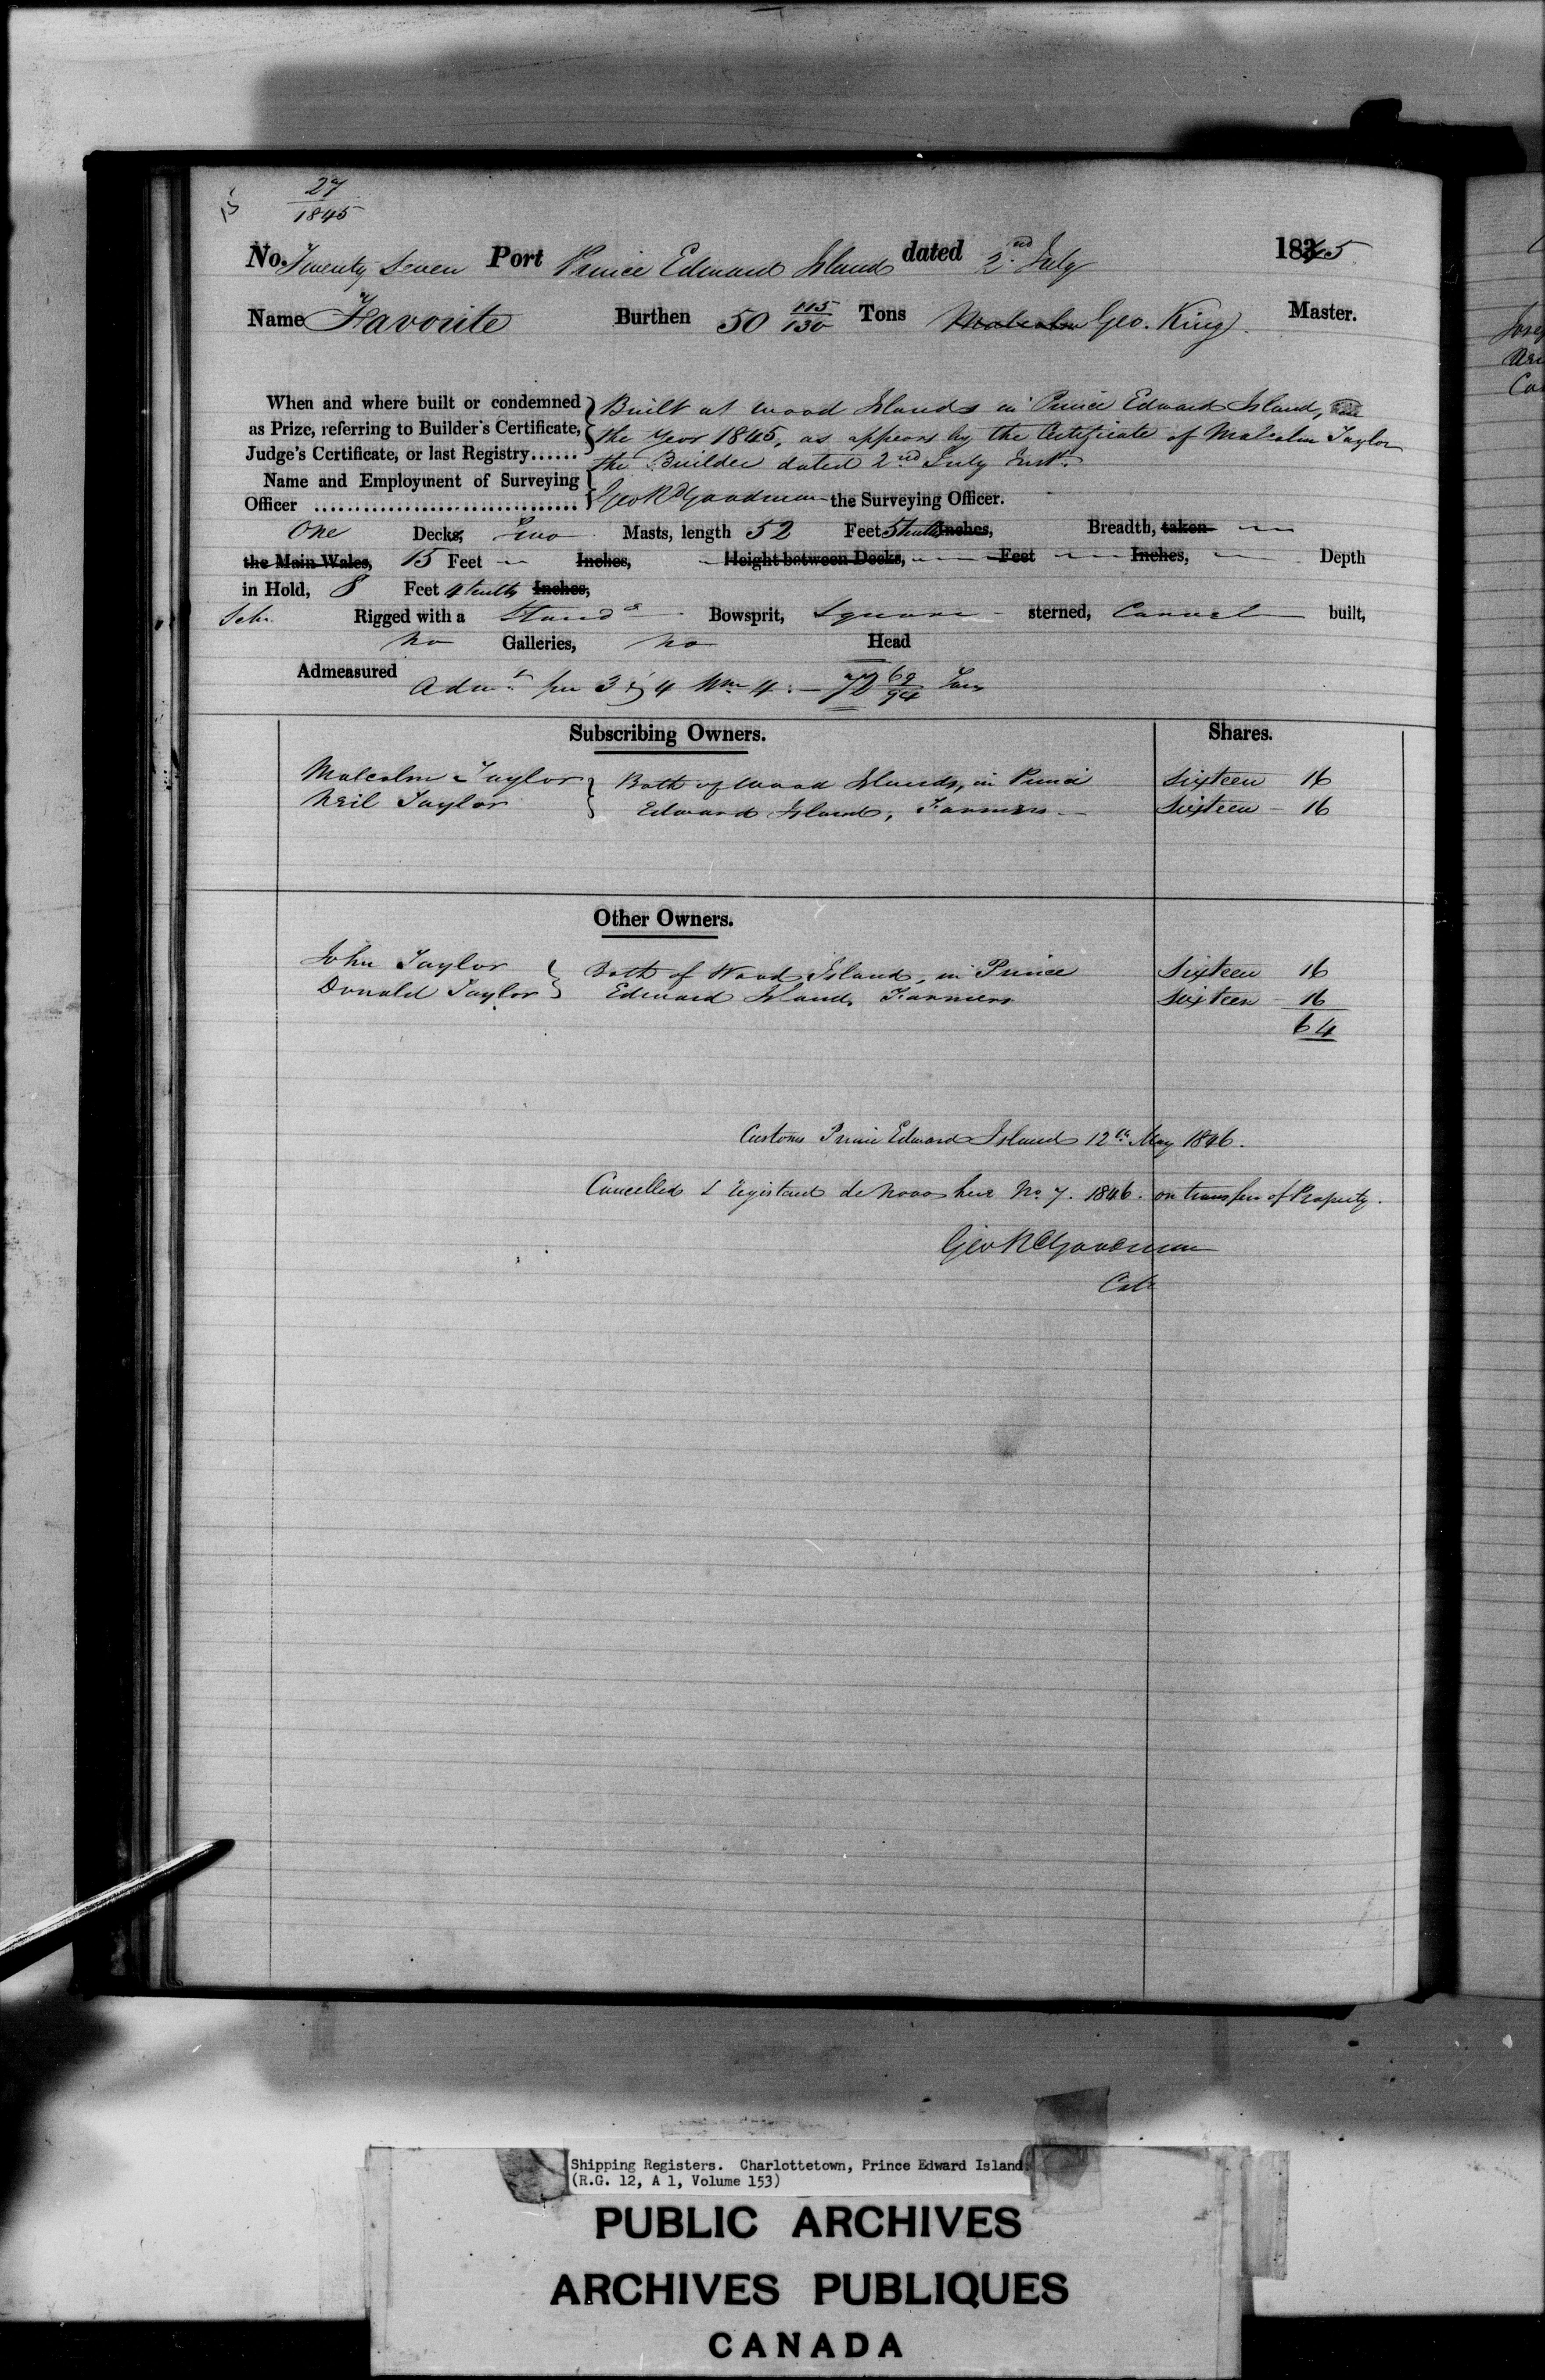 27
1845
No. Twenty Seven Port Prince Edward Island dated 2nd July 1845
Name Favorite Burthen 50 115/130 Tons Malcolm Geo. King Master.
When and where built or condemned as Prize, referring to Builder's Certificate, Judge's Certificate, or last Registry......
Built at Wood Islands in Prince Edward Island, in
the Year 1845, as appears by the Certificate of Malcolm Taylor
the Builder dated 2nd July Inst.
Name and Employment of Surveying
Officer ................................ Geo R Goodman the Surveying Officer.
One Decks, Two Masts, length 52 Feet 5 tenths Inches, Breadth, taken
the Main Wales, 15 Feet Inches, Height between Decks, Feet Inches, Depth
in Hold, 8 Feet 4 tenths Inches,
Schr. Rigged with a Standg Bowsprit, Square sterned, Carvel built,
no Galleries, no Head
Admeasured Adm.t per 3 & 4 Wm 4: 72 62/94 Tons
Subscribing Owners. Shares.
Malcolm Taylor } Both of Wood Islands, in Prince Sixteen 16
Neil Taylor } Edward Island, Farmers Sixteen 16
Other Owners.
John Taylor } Both of Wood Island, in Prince Sixteen 16
Donald Taylor } Edward Island, Farmers Sixteen 16
64
Customs Prince Edward Island 12th May 1846.
Cancelled & registered de Novo here No. 7. 1846. on transfer of Property.
Geo R Goodman
Colr
Shipping Registers. Charlottetown, Prince Edward Island.
(R.G. 12, A 1, Volume 153)
PUBLIC ARCHIVES
ARCHIVES PUBLIQUES
CANADA